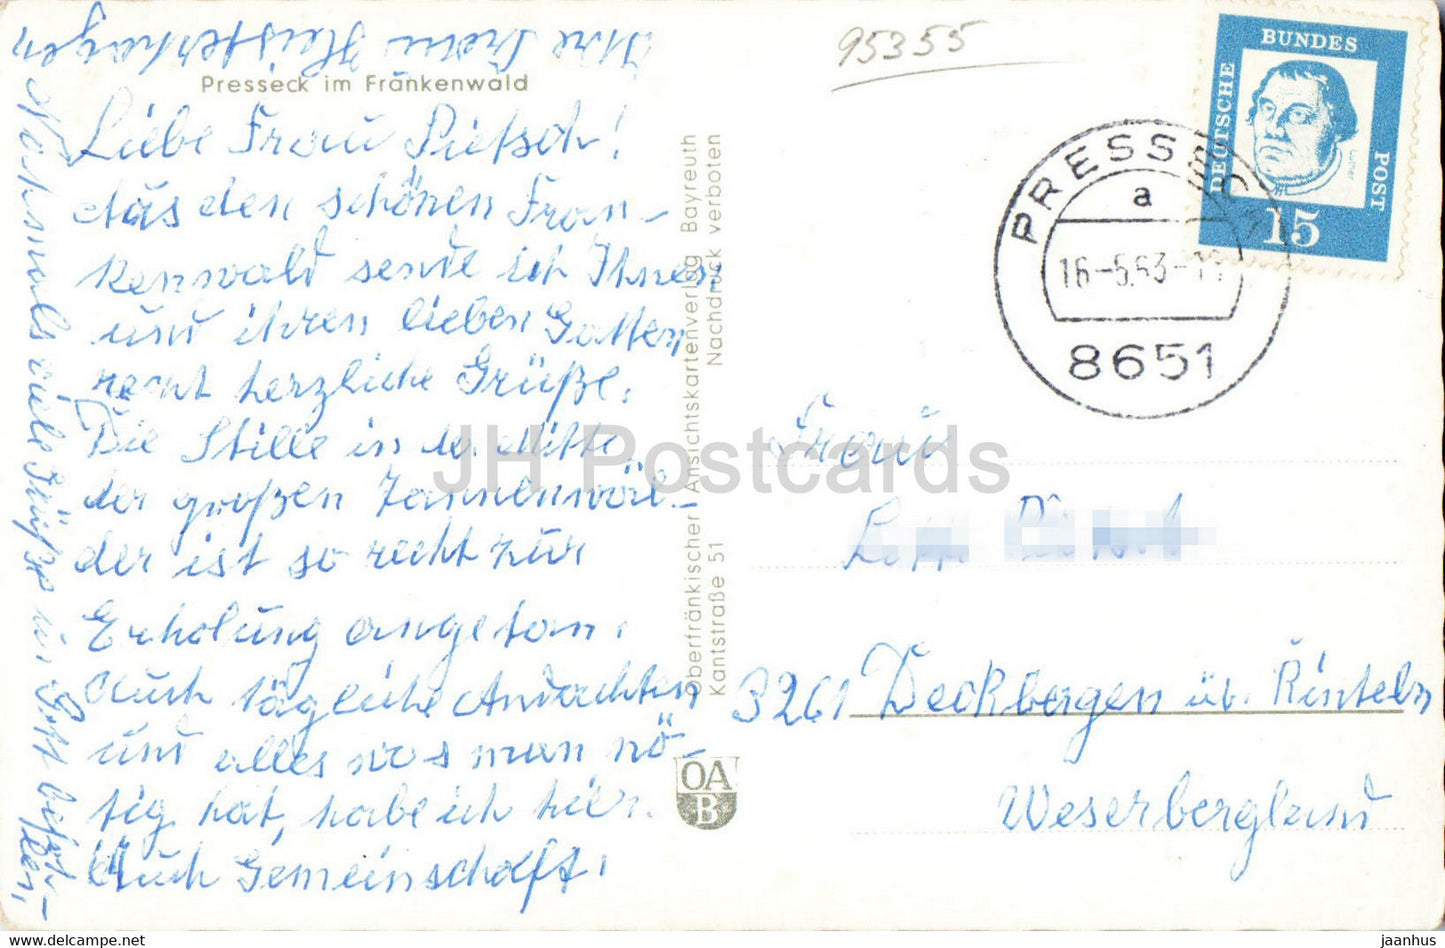 Presseck im Frankenwald
Liebe Frau Pietsch!
Aus dem schönen Fran-
kenwald sende ich Ihnen
und ihren lieben Gatten
recht herzliche Grüße.
Die Stille in d. Mitte
der großen Tannenwäl-
der ist so recht zur
Erholung angetan.
Auch tägliche Andachten
und alles was man nö-
tig hat, habe ich hier.
Auch Gemeinschaft.
Nochmals viele Grüße u. Gott befoh-
len,
Ihre Frau Heisterhagen
Oberfränkischer Ansichtskartenverlag Bayreuth
Kantstraße 51 Nachdruck verboten
OA
B
95355
DEUTSCHE
BUNDES
POST
Luther
15
PRESSECK
a
16.-5.63-1
8651
Frau
3261 Deckbergen üb. Rinteln
Weserbergland
JH Postcards
delcampe.net
jaanhus